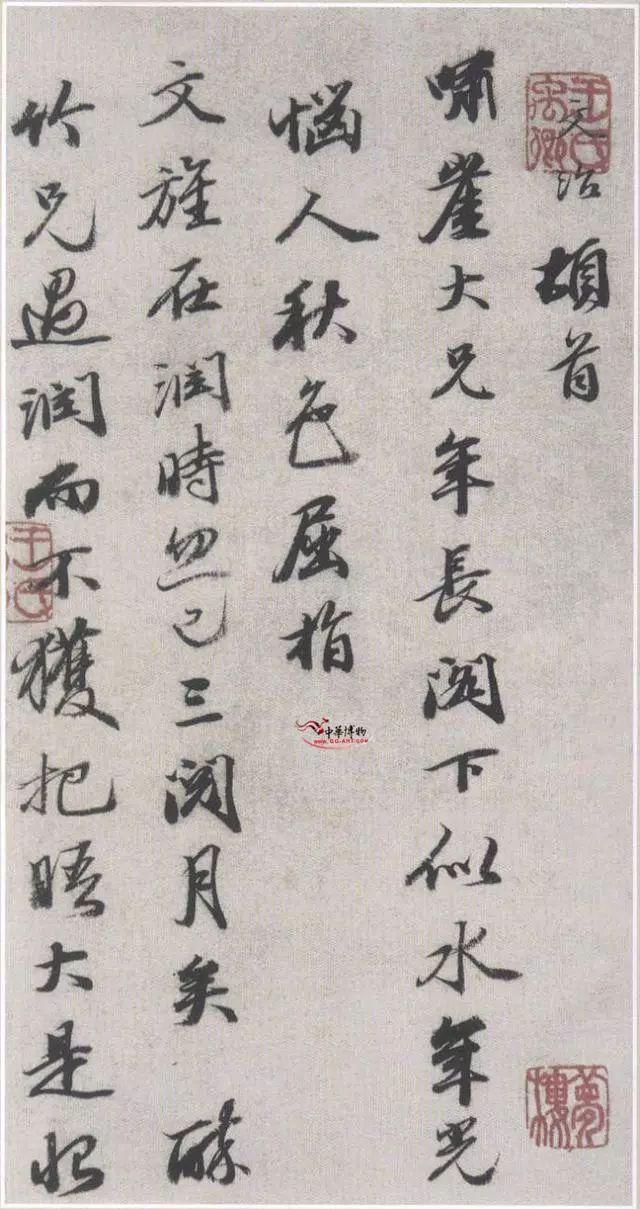 文治頓首
王氏禹卿
嘯崖大兄年長閣下似水年光
惱人秋色屈指
文旌在潤時忽已三閱月矣
竹兄過潤而不獲把晤大是
夢樓
中華博物
WWW.GG-ART.COM